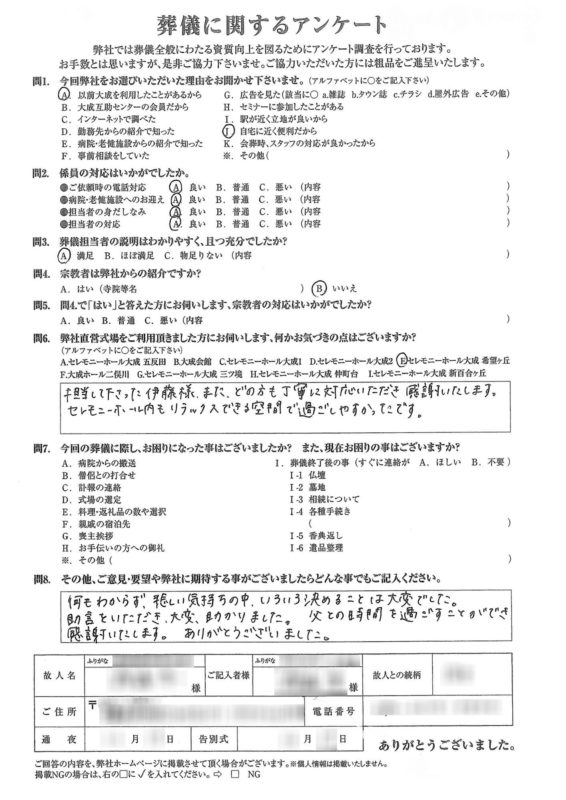 葬儀に関するアンケート
弊社では葬儀全般にわたる資質向上を図るためにアンケート調査を行っております。
お手数とは思いますが、是非ご協力下さいませ。ご協力いただいた方には粗品をご進呈いたします。
問1. 今回弊社をお選びいただいた理由をお聞かせ下さいませ。(アルファベットに○をご記入下さい)
A. 以前大成を利用したことがあるから G. 広告を見た(該当に○ a.雑誌 b.タウン誌 c.チラシ d.屋外広告 e.その他)
B. 大成互助センターの会員だから H. セミナーに参加したことがある
C. インターネットで調べた I. 駅が近く立地が良いから
D. 勤務先からの紹介で知った J. 自宅に近く便利だから
E. 病院・老健施設からの紹介で知った K. 会葬時、スタッフの対応が良かったから
F. 事前相談をしていた ※. その他( )
問2. 係員の対応はいかがでしたか。
●ご依頼時の電話対応 A. 良い B. 普通 C. 悪い (内容 )
●病院・老健施設へのお迎え A. 良い B. 普通 C. 悪い (内容 )
●担当者の身だしなみ A. 良い B. 普通 C. 悪い (内容 )
●担当者の対応 A. 良い B. 普通 C. 悪い (内容 )
問3. 葬儀担当者の説明はわかりやすく、且つ充分でしたか?
A. 満足 B. ほぼ満足 C. 物足りない (内容 )
問4. 宗教者は弊社からの紹介ですか?
A. はい (寺院等名 ) B. いいえ
問5. 問4.で「はい」と答えた方にお伺いします、宗教者の対応はいかがでしたか?
A. 良い B. 普通 C. 悪い (内容 )
問6. 弊社直営式場をご利用頂きました方にお伺いします、何かお気づきの点はございますか?
(アルファベットに○をご記入下さい)
A.セレモニーホール大成 五反田 B.大成会館 C.セレモニーホール大成1 D.セレモニーホール大成2 E.セレモニーホール大成 希望ヶ丘
F.大成ホール二俣川 G.セレモニーホール大成 三ツ境 H.セレモニーホール大成 仲町台 I.セレモニーホール大成 新百合ヶ丘
担当して下さった伊藤様、また、どの方も丁寧に対応いただき 感謝いたします。
セレモニーホール内もリラックスできる空間で過ごしやすかったです。
問7. 今回の葬儀に際し、お困りになった事はございましたか? また、現在お困りの事はございますか?
A. 病院からの搬送 I. 葬儀終了後の事 (すぐに連絡が A. ほしい B. 不要)
B. 僧侶との打合せ I-1 仏壇
C. 訃報の連絡 I-2 墓地
D. 式場の選定 I-3 相続について
E. 料理・返礼品の数や選択 I-4 各種手続き
F. 親戚の宿泊先 ( )
G. 喪主挨拶 I-5 香典返し
H. お手伝いの方への御礼 I-6 遺品整理
※. その他 ( )
問8. その他、ご意見・要望や弊社に期待する事がございましたらどんな事でもご記入ください。
何もわからず、悲しい気持ちの中、いろいろ決めることは大変でした。
助言をいただき、大変、助かりました。 父との時間を過ごすことができ
感謝いたします。 ありがとうございました。
ふりがな ふりがな
故人名 様 ご記入者様 様 故人との続柄
ご住所 〒 電話番号
通夜 月 日 告別式 月 日
ありがとうございました。
ご回答の内容を、弊社ホームページに掲載させて頂く場合がございます。※個人情報は掲載いたしません。
掲載NGの場合は、右の□に✓を入れてください。⇨ □ NG